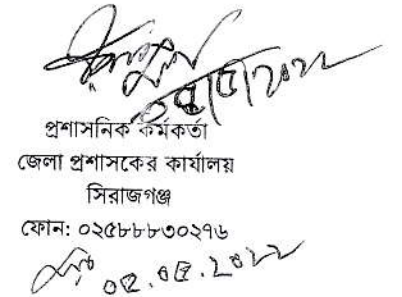 প্রশাসনিক কর্মকর্তা
জেলা প্রশাসকের কার্যালয়
সিরাজগঞ্জ
ফোন: ০২৫৮৮৮৩০২৭৬